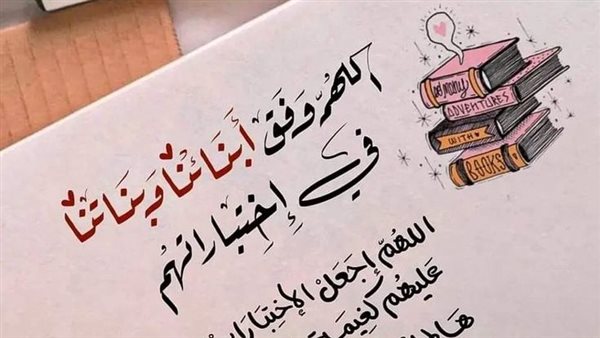 اللهُمّ وَفق أَبنَائنْا وَبنَاتنْا
في إِختِبَاراتهُم
اللهُمّ إجعَل الإختِبَارَا
عَليهُم كَغِيمَة
So many
ADVENTURES
WITH
BOOKS